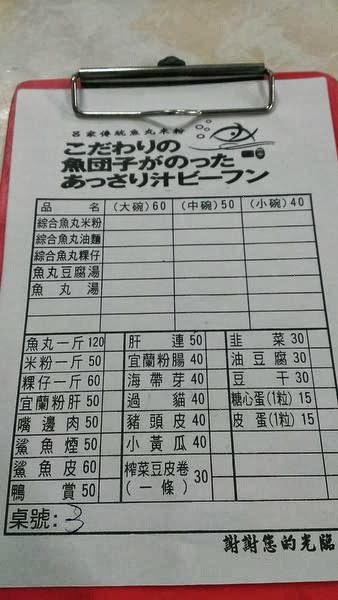 呂家傳統魚丸米粉
こだわりの
魚団子がのった
あっさり汁ビーフン
品名 (大碗)60 (中碗)50 (小碗)40
綜合魚丸米粉
綜合魚丸油麵
綜合魚丸粿仔
魚丸豆腐湯
魚丸湯
魚丸一斤120 肝連50 韭菜30
米粉一斤50 宜蘭粉腸40 油豆腐30
粿仔一斤60 海帶芽40 豆干30
宜蘭粉肝50 過貓40 糖心蛋(1粒)15
嘴邊肉50 豬頭皮40 皮蛋(1粒)15
鯊魚煙50 小黃瓜40
鯊魚皮60 榨菜豆皮卷(一條)30
鴨賞50
桌號:3
謝謝您的光臨